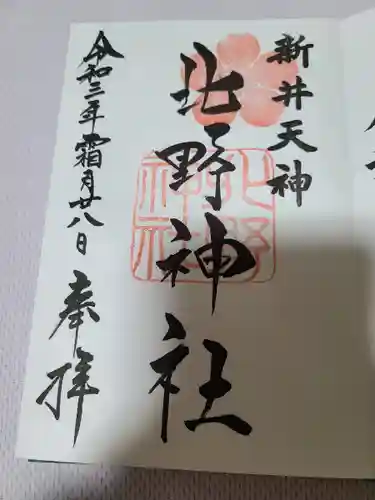 新井天神
北野神社
北野神社
令和二年霜月廿八日
奉拝